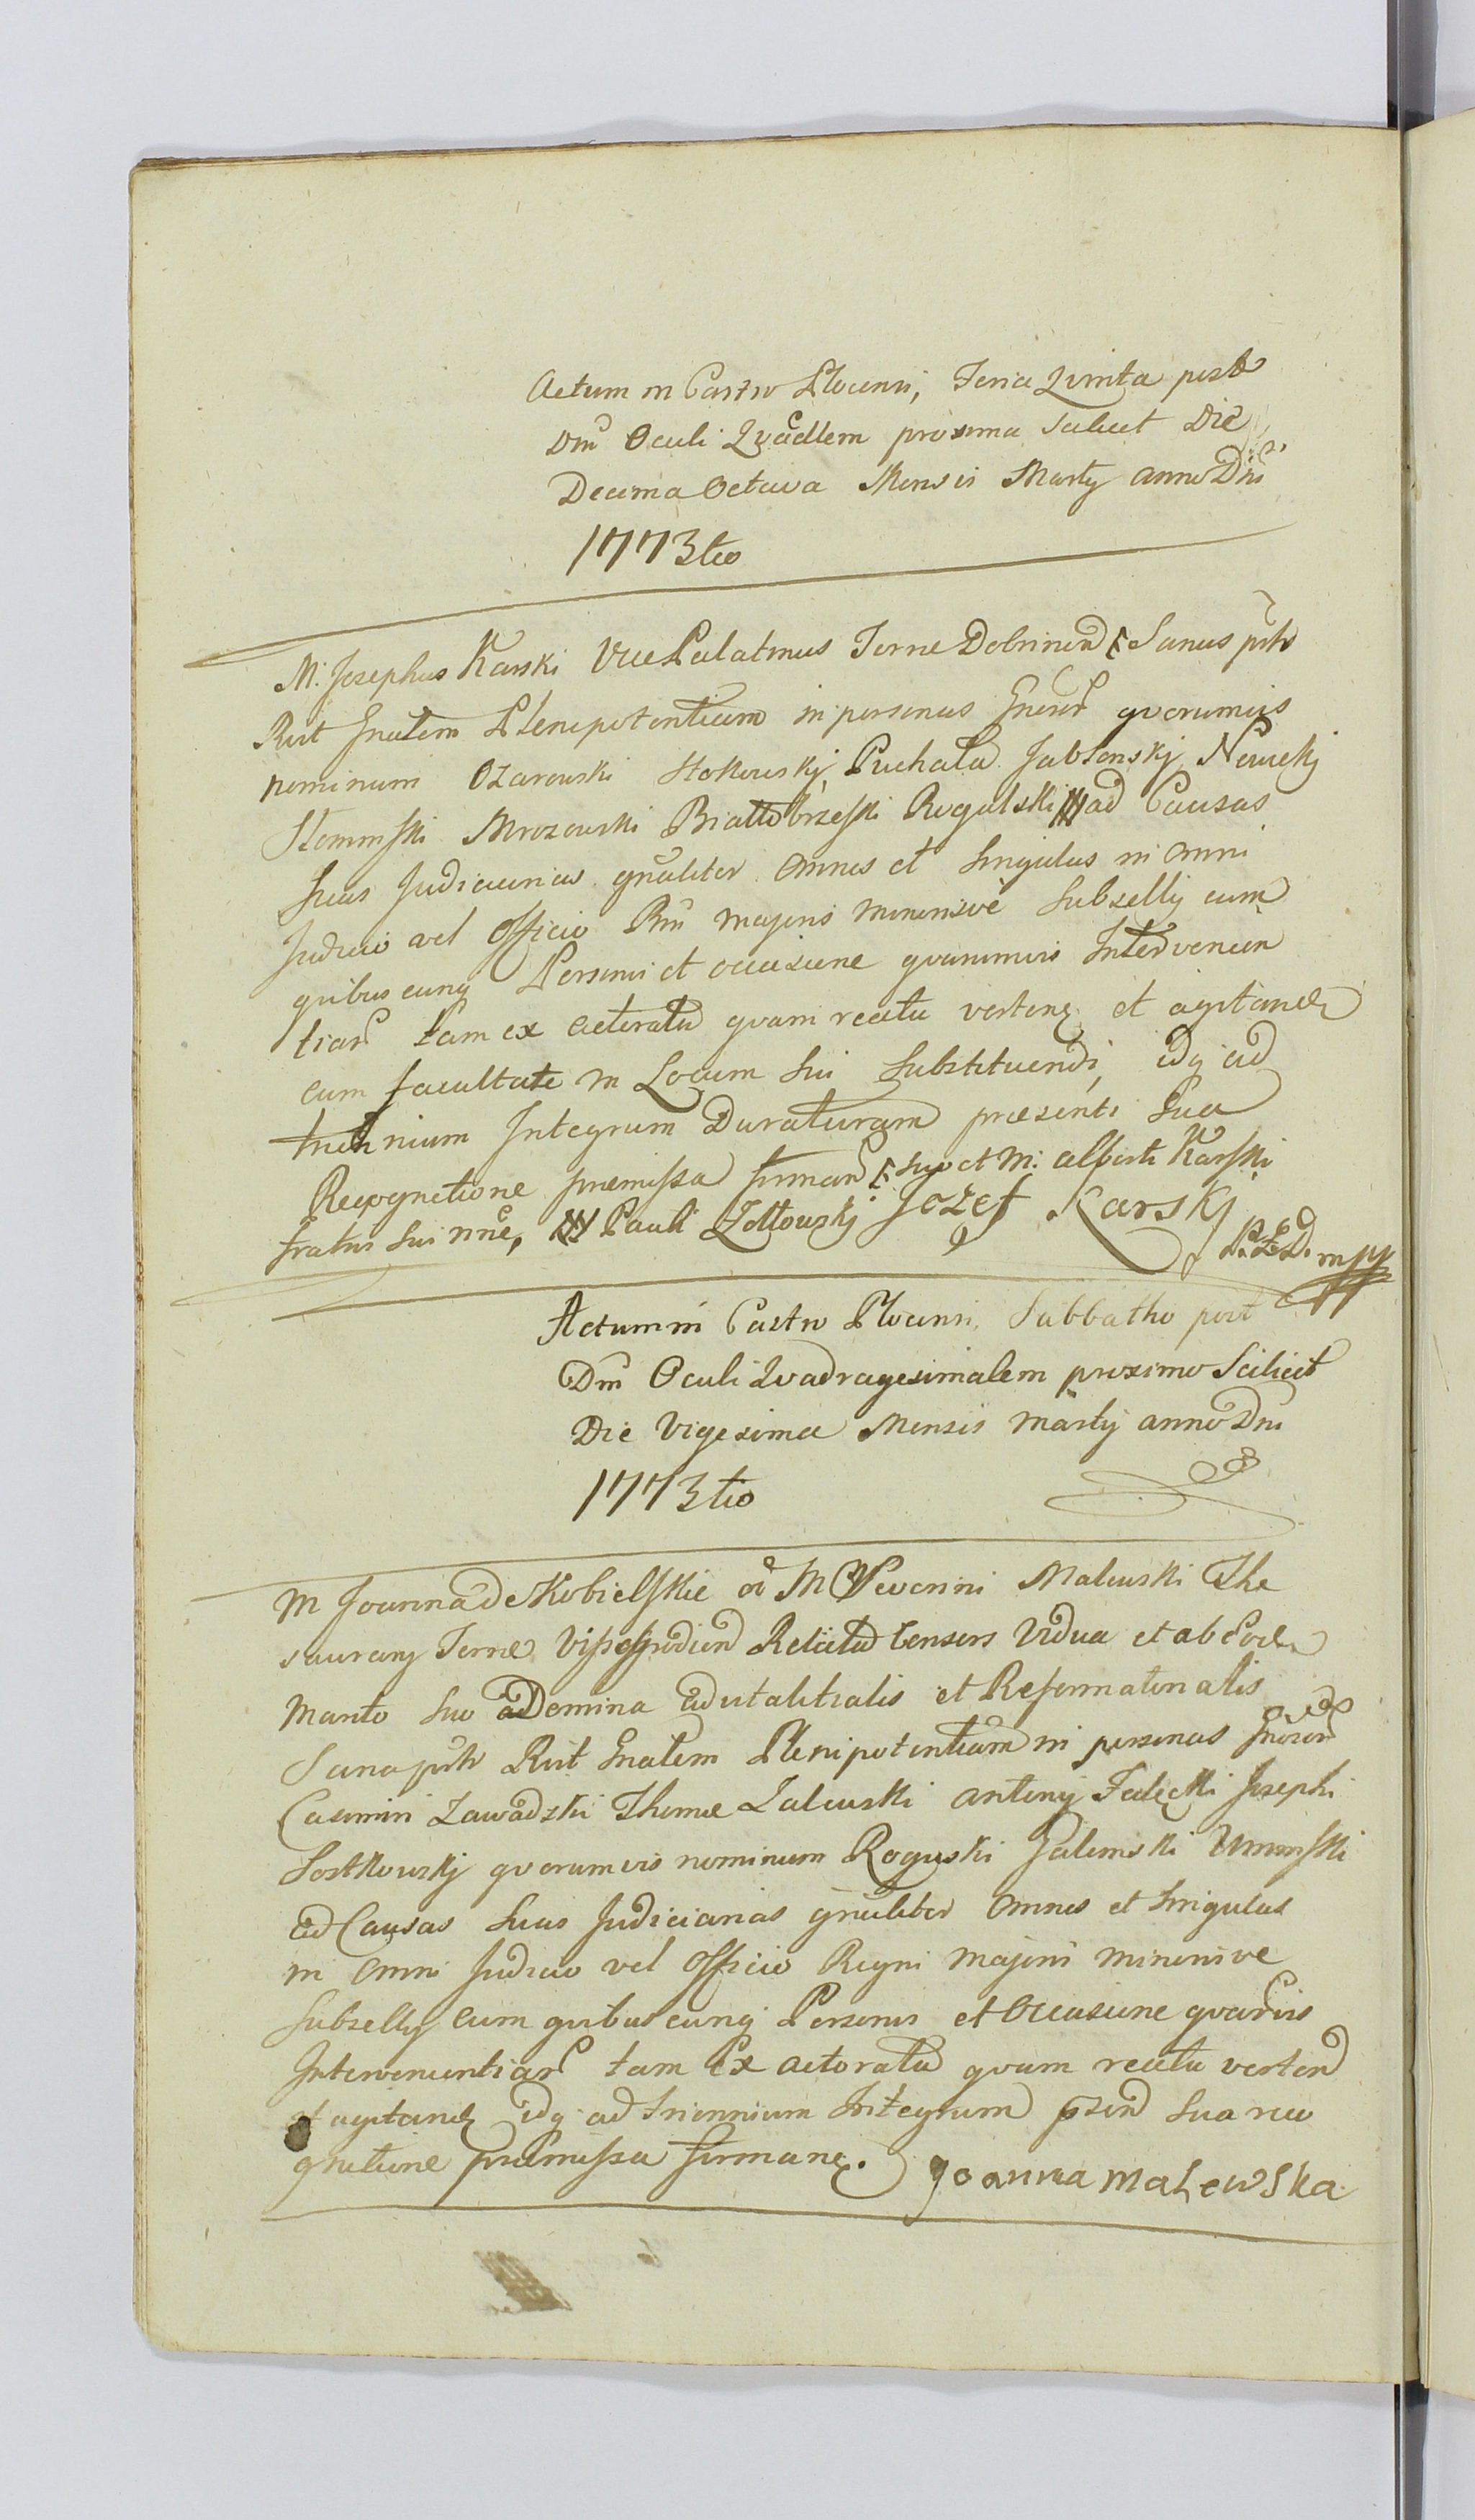 Actum in Castro Plocensi, Feria Quinta post
Dm̃ Oculi Qvadlem proxima scilicet Die
Decima Octava Mensis Martij anno Dni
1773tio
M. Josephus Karski Vice Palatinus Terrae Dobrinen Sanus
Rnt Gnalem Plenipotentiam in personas Gnersr qvorumvis
nominum Ozarowski Stokowskj Puchała Jabłonskj Nowickj
Słominski Mrozowski Białłobrzeski Rogulski ad Causas
suas Judiciarias gnaliter omnes et singulas in omni
Judicio vel Officio Rni majoris minorisve Subsellij cum
qvibuscunq Personis et occasione qvarumvis Intervenien
tiar tam ex actoratu qvam reatu verten et agitand
cum facultate in Locum sui Substituendi, idq ad
triennium Integrum Duraturam praesenti sua
Recognitione praemissa firman suo et M. Alberti Karski
fratris sui nne, Pauli Żołtowskj Jozef Karskj
P. Z. D. mpp
Actum in Castro Plocensi, Sabbatho post
Dm̃ Oculi Qvadragesimalem proximo Scilicet
Die Vigesima Mensis Martij anno Dni
1773tio
M Joanna de Kobielskie M Severini Malewski The
saurarij Terrae Relicta Consors Vidua et ab eod
Marito suo Domina advitalitialis et Reformatorialis
Sana Rnt Gnalem Plenipotentiam in personas Gnersr
Casimiri Zawadzki Thomae Zalewski Antonij Falęcki Josephi
Sostkowskj qvorumvis nominum Roguski Galemski Uminski
ad Causas suas Judiciarias gnaliter omnes et singulas
in omni Judicio vel Officio Regni majoris minorisve
Subsellij cum qvibuscunq Personis et occasione qvarvis
Intervenientiar tam ex actoratu qvam reatu verten
et agitand idq ad triennium Integrum pszen sua reco
gnitione praemissa firman. Joanna Malewska